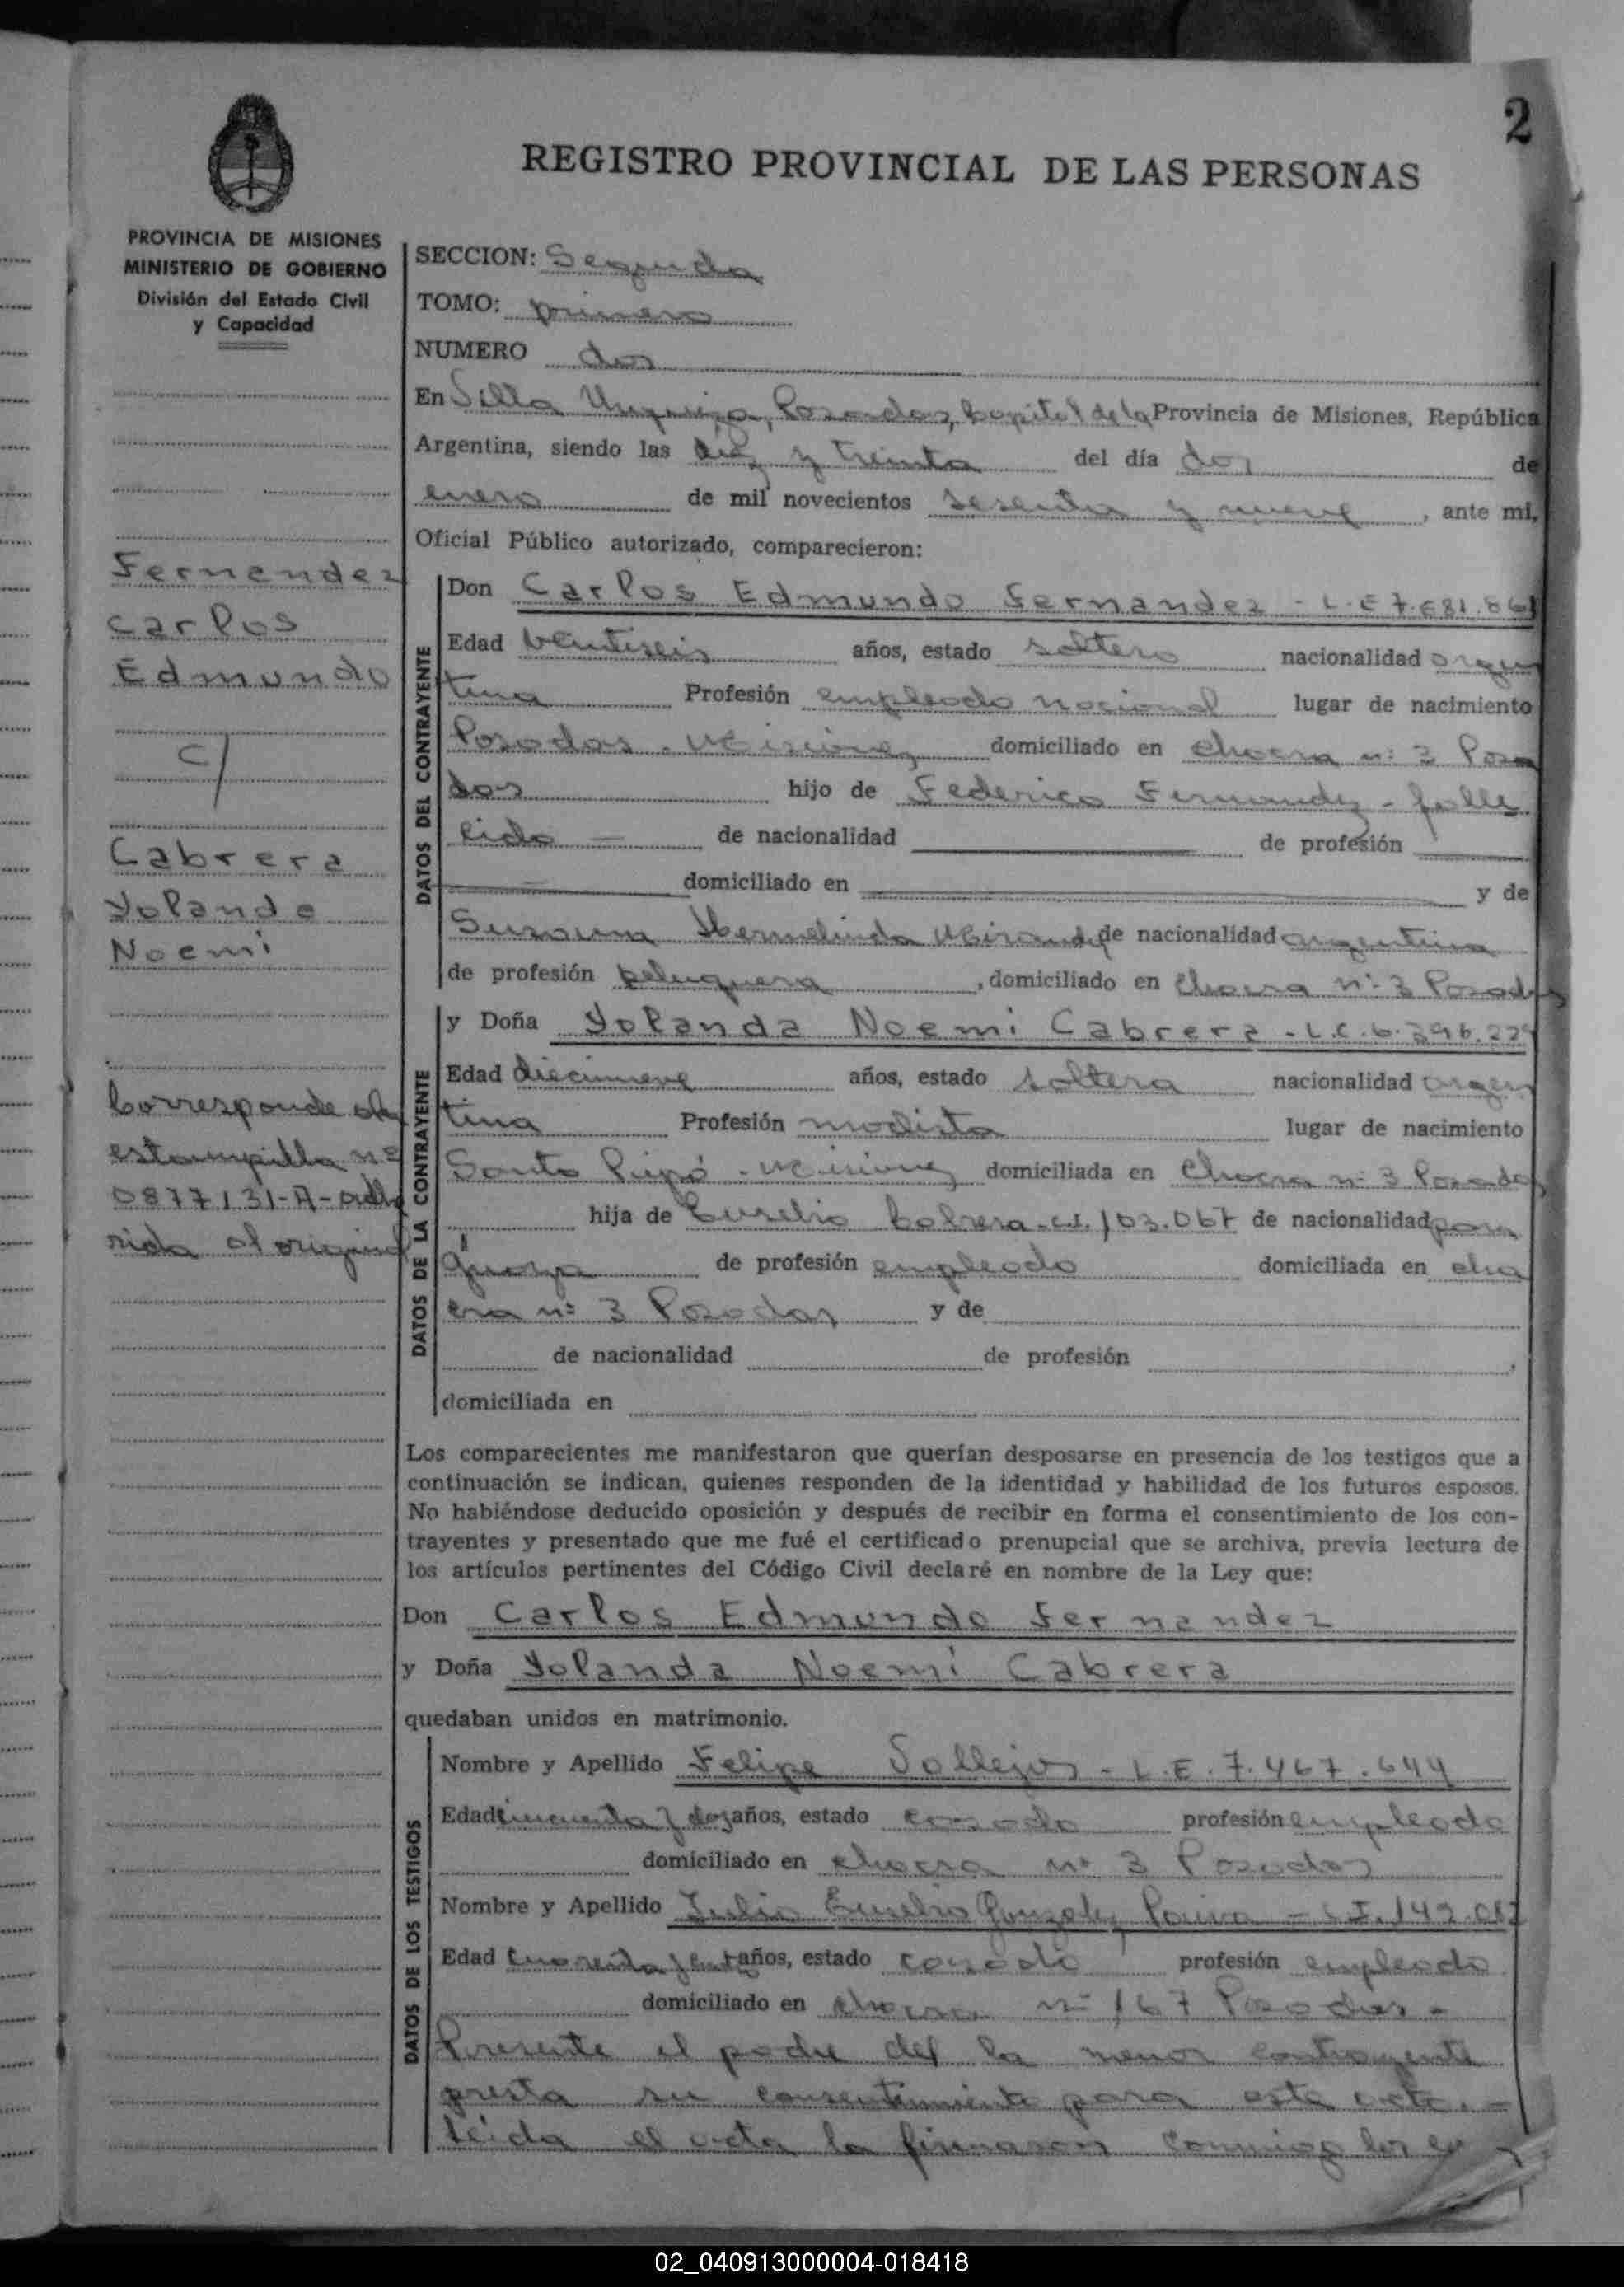 2
REGISTRO PROVINCIAL DE LAS PERSONAS
PROVINCIA DE MISIONES
MINISTERIO DE GOBIERNO
División del Estado Civil
y Capacidad
Fernandez
Carlos
Edmundo
c/
Cabrera
Yolanda
Noemi
Corresponde a la
estampilla nº
0877131-A- adhe
rida al original
SECCION: Segunda
TOMO: primero
NUMERO dos
En Villa Urquiza, Posadas, Capital de la Provincia de Misiones, República
Argentina, siendo las diez y treinta del día dos de
enero de mil novecientos sesenta y nueve, ante mi,
Oficial Público autorizado, comparecieron:
DATOS DEL CONTRAYENTE
Don Carlos Edmundo Fernandez - L.E 7.681.861
Edad veintiseis años, estado soltero nacionalidad argen
tina Profesión empleado nacional lugar de nacimiento
Posadas - Misiones domiciliado en chacra nº 3 Posa
das hijo de Federico Fernandez - falle
cido - de nacionalidad de profesión
domiciliado en y de
Susana Hermelinda Miranda de nacionalidad argentina
de profesión peluquera, domiciliado en chacra nº 3 Posadas
DATOS DE LA CONTRAYENTE
y Doña Yolanda Noemi Cabrera - L.C. 6.396.229
Edad diecinueve años, estado soltera nacionalidad argen
tina Profesión modista lugar de nacimiento
Santo Pipó - Misiones domiciliada en Chacra nº 3 Posadas
hija de Eusebio Cabrera - C.I. 103.067 de nacionalidad para
guaya de profesión empleado domiciliada en cha
cra nº 3 Posadas y de
de nacionalidad de profesión ,
domiciliada en
Los comparecientes me manifestaron que querían desposarse en presencia de los testigos que a
continuación se indican, quienes responden de la identidad y habilidad de los futuros esposos.
No habiéndose deducido oposición y después de recibir en forma el consentimiento de los con-
trayentes y presentado que me fué el certificado prenupcial que se archiva, previa lectura de
los artículos pertinentes del Código Civil declaré en nombre de la Ley que:
Don Carlos Edmundo Fernandez
y Doña Yolanda Noemi Cabrera
quedaban unidos en matrimonio.
DATOS DE LOS TESTIGOS
Nombre y Apellido Felipe Vallejos - L.E. 7.467.644
Edad cincuenta y dos años, estado casado profesión empleado
domiciliado en chacra nº 3 Posadas
Nombre y Apellido Julio Eusebio Gonzalez Paiva - C.I. 142.017
Edad cuarenta y años, estado casado profesión empleado
domiciliado en chacra nº 167 Posadas -
Presente el padre de la menor contrayente
presta su consentimiento para este acto. -
Leida el acta la firmaron conmigo los
02_040913000004-018418